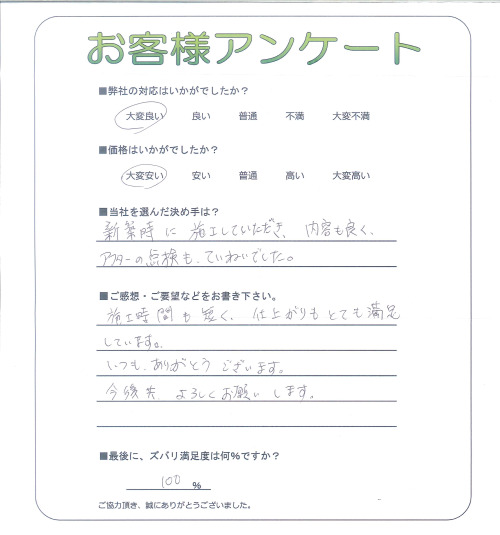 お客様アンケート
■弊社の対応はいかがでしたか？
大変良い 良い 普通 不満 大変不満
■価格はいかがでしたか？
大変安い 安い 普通 高い 大変高い
■当社を選んだ決め手は？
新築時に 施工していただき、内容も良く、
アフターの点検も、ていねいでした。
■ご感想・ご要望などをお書き下さい。
施工時間も短く、仕上がりもとても満足
しています。
いつも、ありがとうございます。
今後共、よろしくお願いします。
■最後に、ズバリ満足度は何%ですか？
100 %
ご協力頂き、誠にありがとうございました。